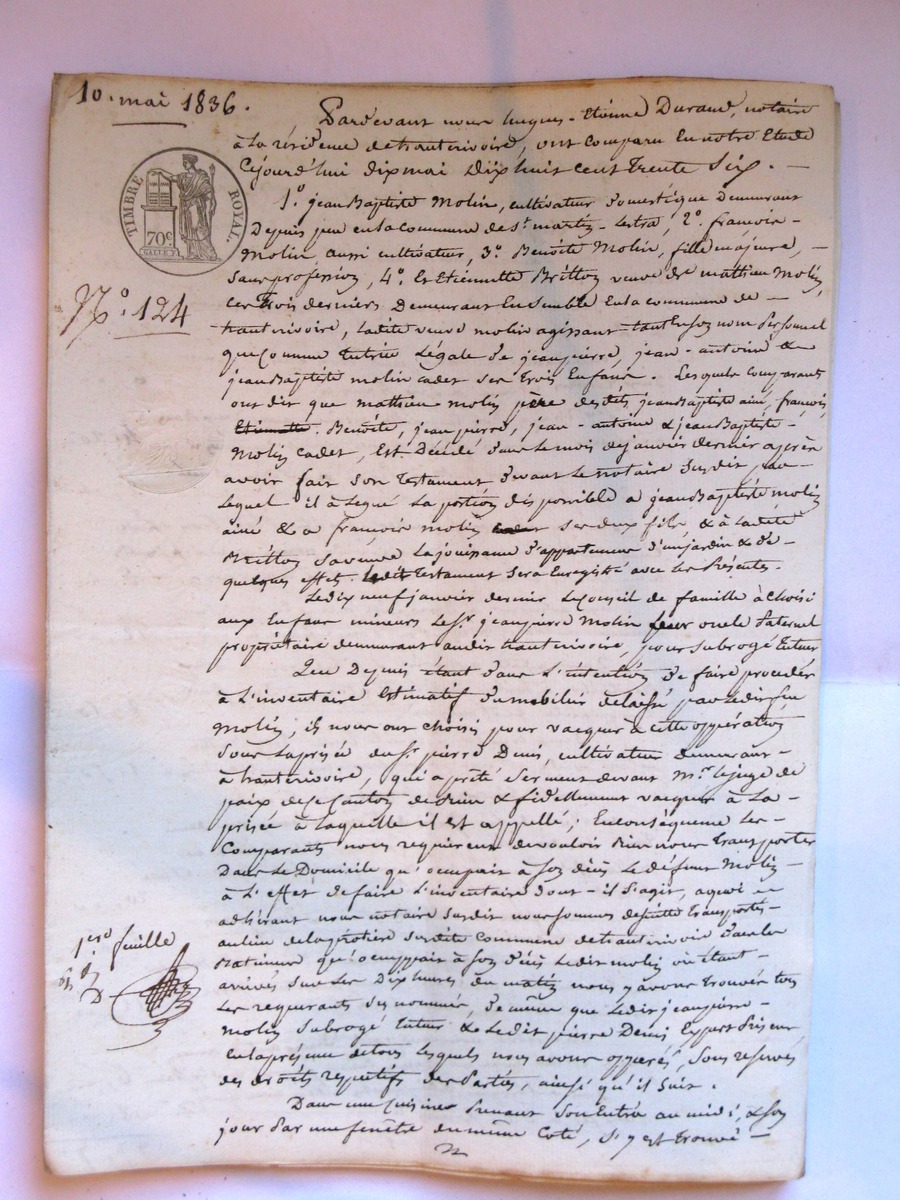 10. mai 1836.
Pardevant nous hugues-Etienne Durand, notaire
à La résidence de hauterivoire, ont Comparu En notre Etude
Cejourd'hui dix mai Dix huit cent Trente Six. —
TIMBRE ROYAL.
70c
1.o jean Baptiste Molin, cultivateur Domestique Demeurant
Depuis peu en la Commune de St. martin - Lestra, 2o. françois -
Molin, aussi cultivateur, 3o. Benoîte Molin, fille majeure, -
Sans profession, 4o. Et Etiennette Britton veuve de mathieu Molin,
No. 124
Ces trois derniers Demeurant Ensemble En la commune de -
hauterivoire, Ladite veuve molin agissant tant En son nom Personnel
que Comme tutrice Légale de jean pierre, jean - antoine &
jean Baptiste molin cadet Ses Trois Enfans. Lesquels Comparants
ont dit que mathieu molin père desdits jean Baptiste ainé, françois
Etiennette. Benoîte, jean pierre, jean - antoine & jean Baptiste -
Molin Cadet, Est Décédé Dans Le mois de janvier dernier après
avoir fait Son Testament Devant Le notaire Susdit par
Lequel il a Legué La portion disponible a jean Baptiste molin
ainé & a françois molin Ses deux fils, & à Ladite
Britton Sa veuve La jouissance D'appartemens D'un jardin & de -
quelques effets. Ledit Testament Sera Enregistré avec Les Présentes.
Le dix neuf janvier dernier Le Conseil de famille à Choisi
aux Enfans mineurs Le Sr. jean pierre Molin Leur oncle Paternel
propriétaire demeurant audit hauterivoire, pour Subrogé tuteur
Que Depuis étant Dans L'intention De faire procéder
à L'inventaire Estimatif Du mobilier délaissé par Ledit feu
Molin, ils nous ont choisis pour vacquer à cette oppération
Sous La prisée du Sr. pierre Denis, cultivateur Demeurant -
à hauterivoire, qui a prêté Serment devant Mr. Le juge de
paix de ce Canton de bien & fidellement vacquer à La -
prisée à Laquelle il est appellé; En conséquence Les -
Comparants nous requièrent de vouloir Bien nous Transporter
Dans Le Domicile qu'occupait à Son décès Le défunt Molin -
à L'effet de faire L'inventaire dont - il S'agit, a quoi
adhérant nous notaire Susdit nous Sommes de suite Transportés -
au lieu de Susdite Commune de hauterivoire Dans Les
1ere feuille
Batimens qu'occuppait à Son décès Ledit molin où étant -
arrivés Sur Les Dix heures du matin nous y avons Trouvés tous
Les requérants Susnommés, De même que Ledit jean pierre -
Molin Subrogé tuteur & Ledit pierre Denis Expert Priseur
En La présence de tous Lesquels nous avons oppérés, Sous réserves
des droits respectifs des Parties, ainsi qu'il Suit.
Dans une Cuisine Prenant Son Entrée au midi, & Son
jour Par une fenêtre du même Coté, S'y est trouvé -